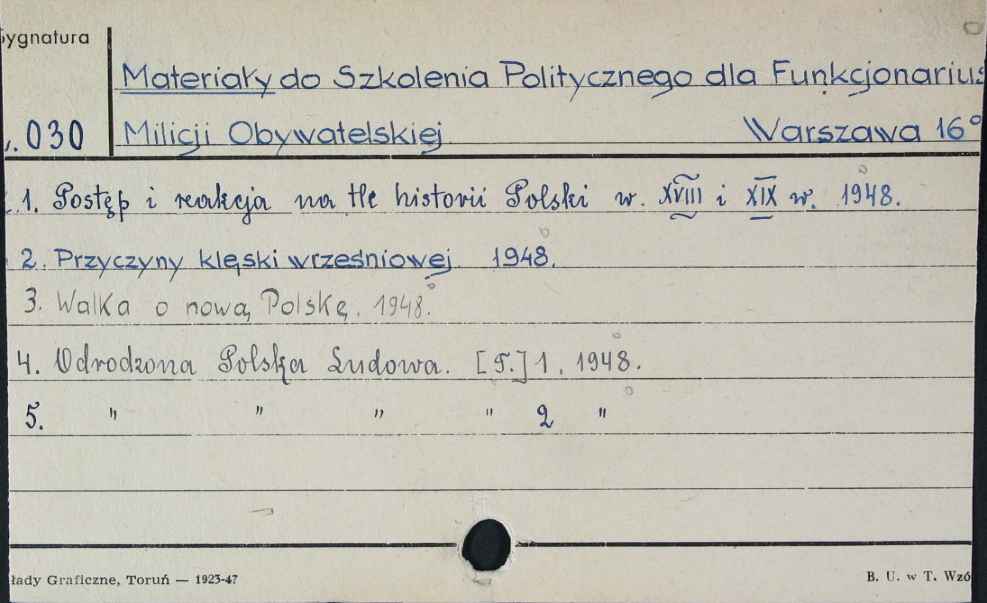 Sygnatura
Materiały do Szkolenia Politycznego dla Funkcjonarius
030 Milicji Obywatelskiej Warszawa 16°
1. Postęp i reakcja na tle historii Polski w. XVIII i XIX w. 1948.
2. Przyczyny klęski wrześniowej 1948.
3. Walka o nową Polskę. 1948.
4. Odrodzona Polska Ludowa. [T.] 1, 1948.
5. " " " " 2 "
łady Graficzne, Toruń — 1923-47 B. U. w T. Wzó